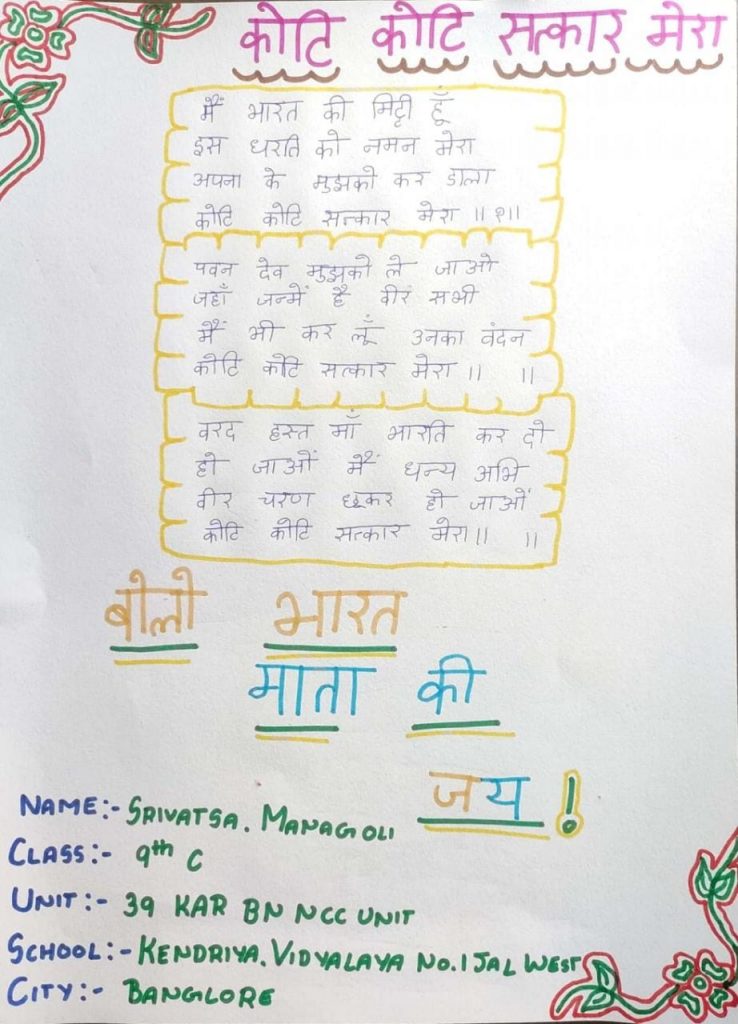 कोटि कोटि सत्कार मेरा
मैं भारत की मिट्टी हूँ
इस धरति को नमन मेरा
अपना के मुझको कर डाला
कोटि कोटि सत्कार मेरा ॥१॥
पवन देव मुझको ले जाओ
जहाँ जन्में है वीर सभी
मैं भी कर लूँ उनका वंदन
कोटि कोटि सत्कार मेरा ॥ ॥
वरद हस्त माँ भारति कर दो
हो जाओं मैं धन्य अभि
वीर चरण छूकर हो जाओं
कोटि कोटि सत्कार मेरा॥ ॥
बोलो भारत
माता की
जय !
NAME:- SRIVATSA. MANAGOLI
CLASS:- 9th C
UNIT:- 39 KAR BN NCC UNIT
SCHOOL:- KENDRIYA. VIDYALAYA NO.1 JAL WEST
CITY:- BANGLORE